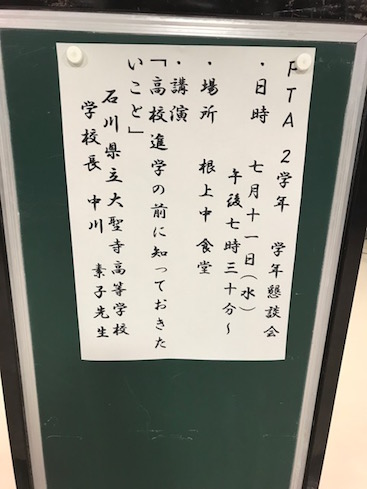 PTA 2学年 学年懇談会
・日時 七月十一日(水)
午後七時三十分~
・場所 根上中 食堂
・講演
「高校進学の前に知っておきた
いこと」
石川県立大聖寺高等学校
学校長 中川 素子先生